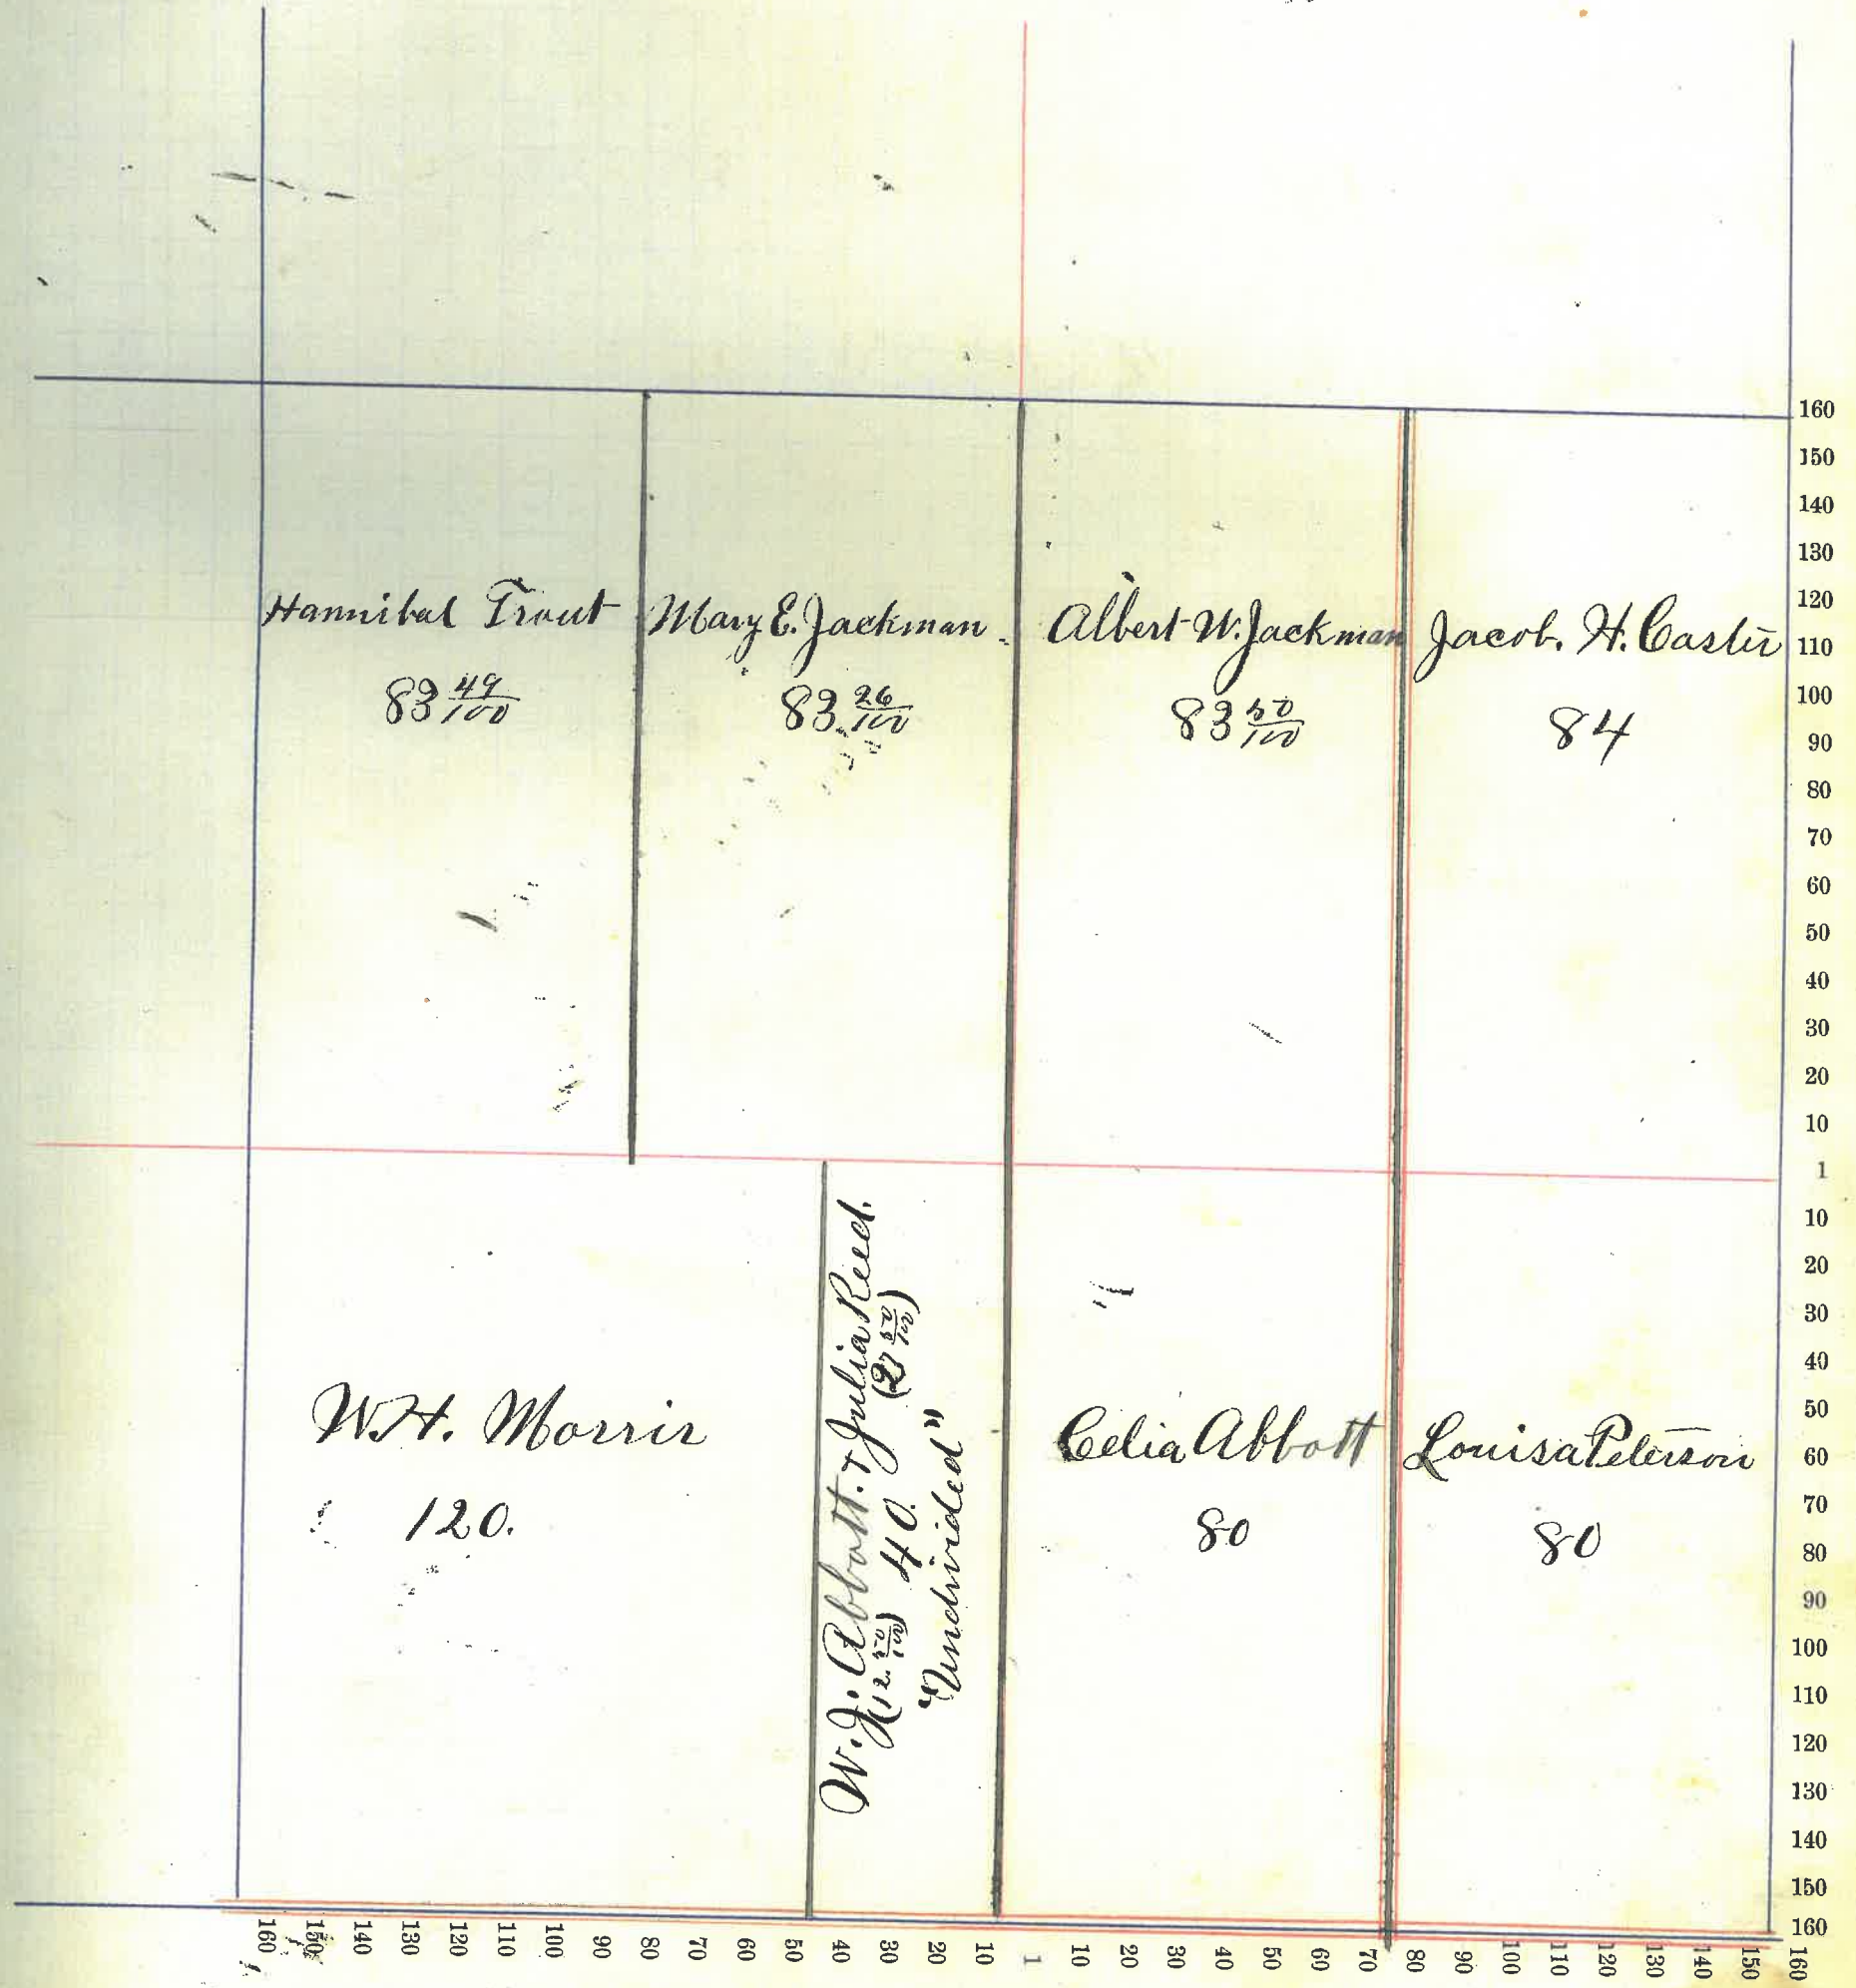 Hannibal Trout
83 49/100
Mary E. Jackman
83 26/100
Albert W. Jackman
83 50/100
Jacob. H. Caster
84
W.H. Morris
120.
W. J. Abbott. & Julia Reed.
(12 50/100) 40. (27 50/100)
"Undivided"
Celia Abbott
80
Louisa Peterson
80
160
150
140
130
120
110
100
90
80
70
60
50
40
30
20
10
1
10
20
30
40
50
60
70
80
90
100
110
120
130
140
150
160
160 150 140 130 120 110 100 90 80 70 60 50 40 30 20 10 1 10 20 30 40 50 60 70 80 90 100 110 120 130 140 150 160